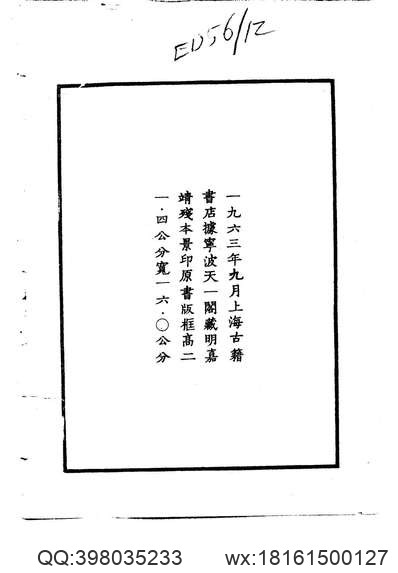 ED56/12
一九六三年九月上海古籍
書店據寧波天一閣藏明嘉
靖殘本景印原書版框高二
一·四公分寬一六·〇公分
QQ:398035233 wx:18161500127